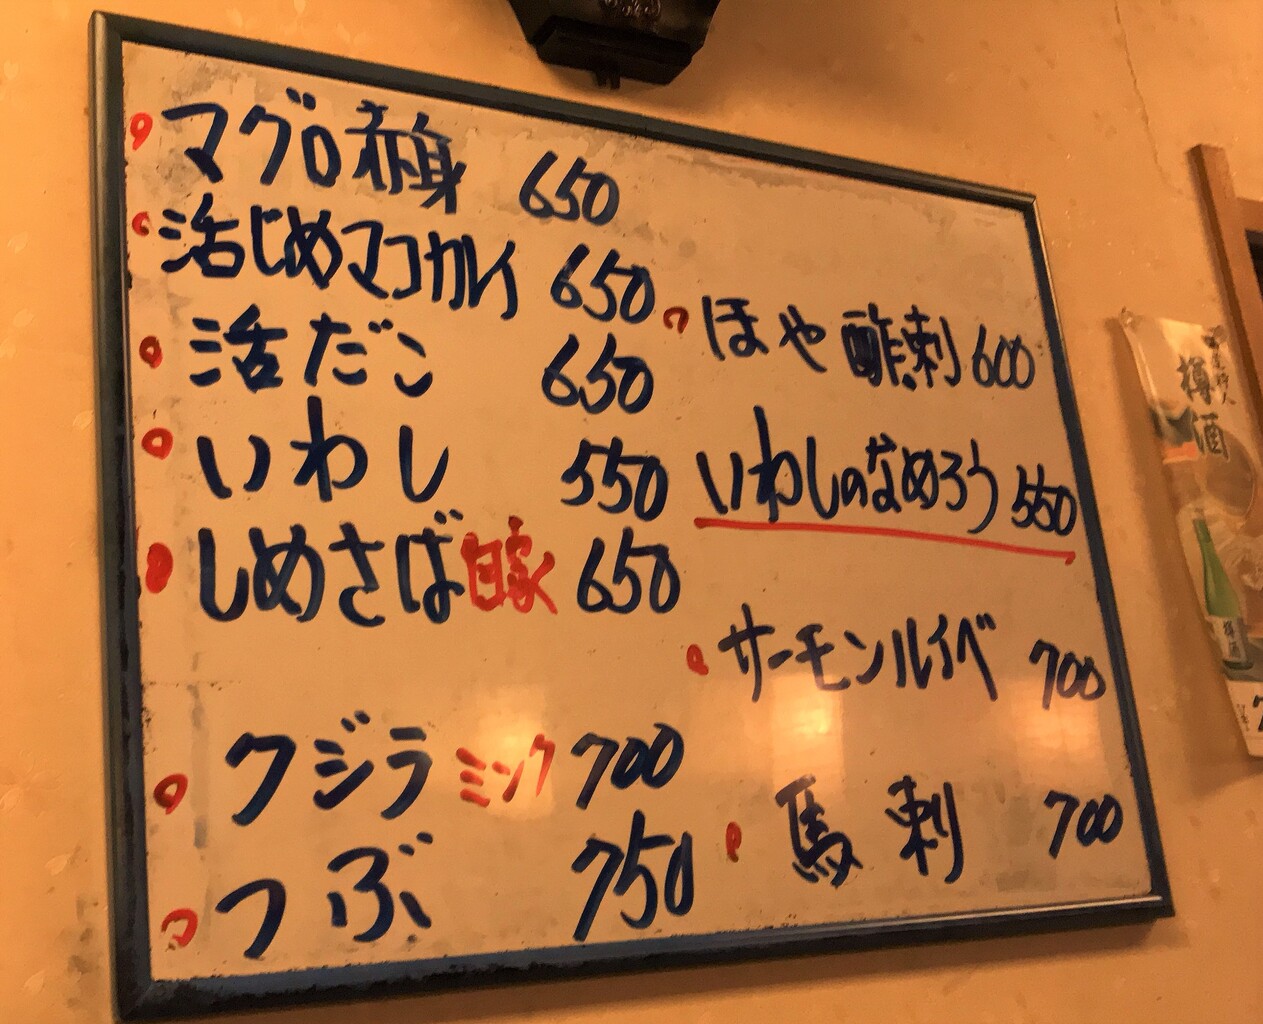 マグロ赤身 650
活じめマコカレイ 650
活だこ 650
いわし 550
しめさば自家 650
クジラ ミンク 700
つぶ 750
ほや酢刺 600
いわしのなめろう 550
サーモンルイベ 700
馬刺 700
樽酒
樽酒